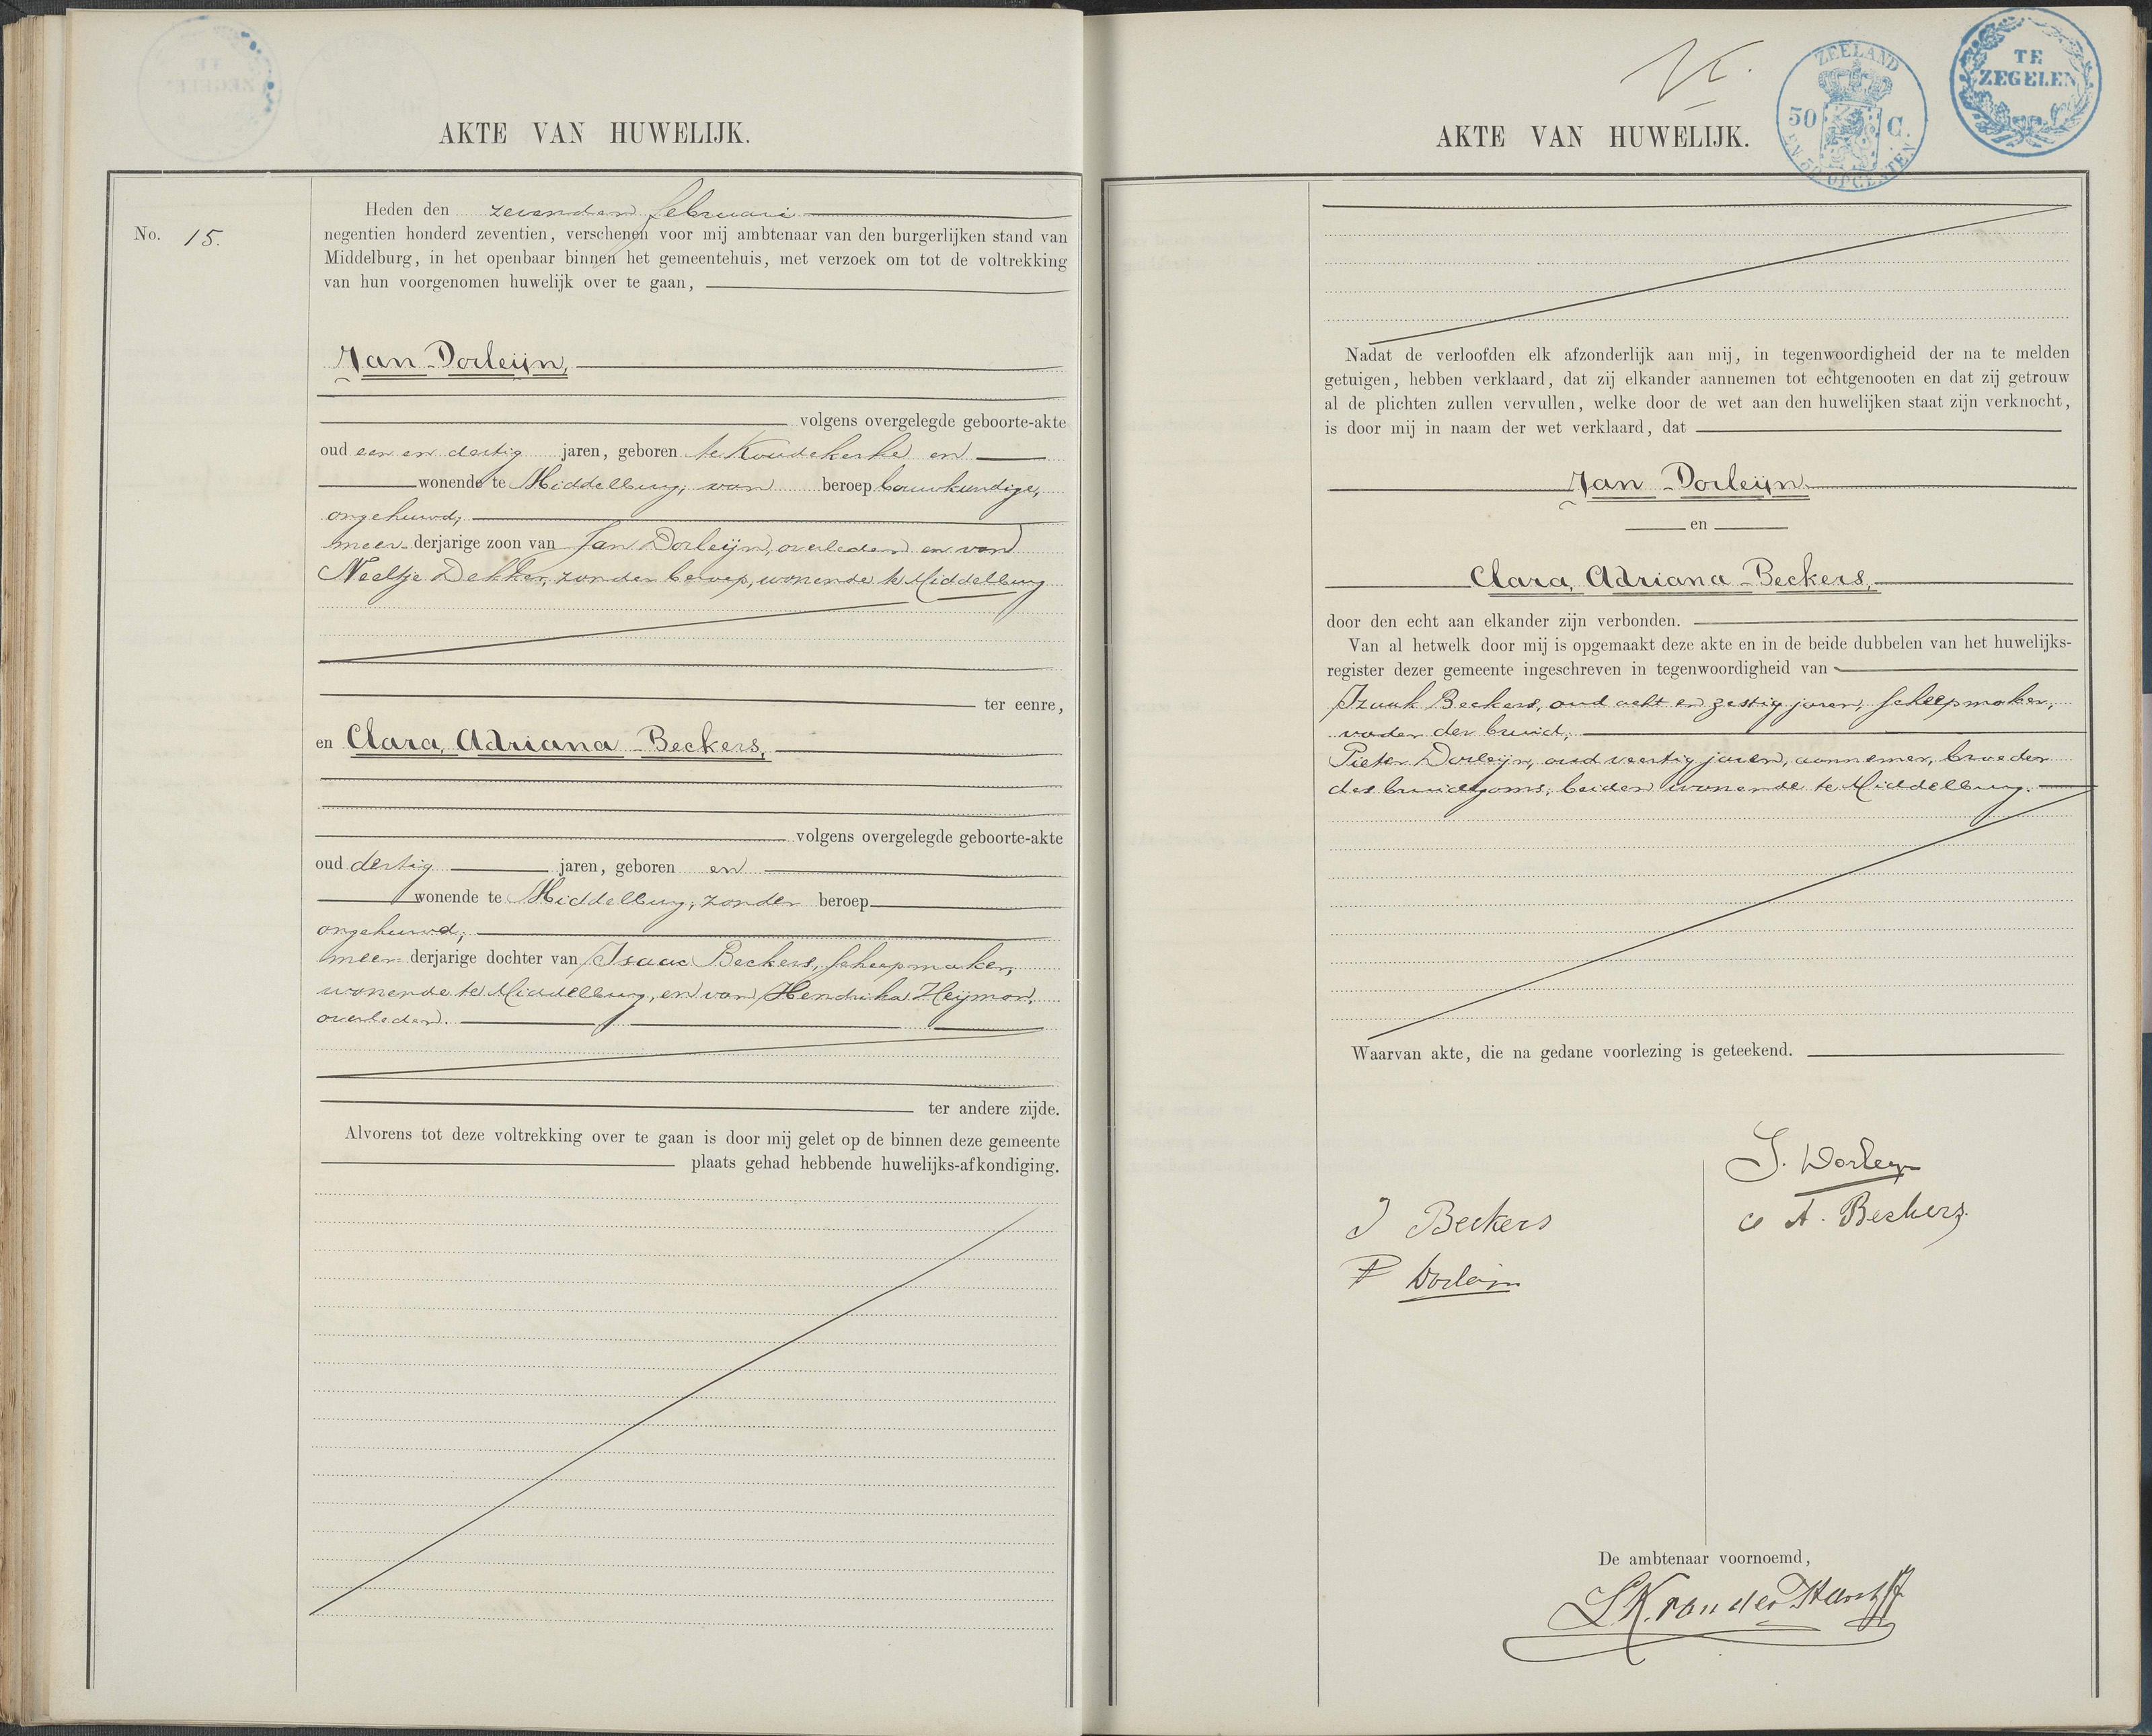 AKTE VAN HUWELIJK.
No. 15.
Heden den zevenden februari
negentien honderd zeventien, verschenen voor mij ambtenaar van den burgerlijken stand van
Middelburg, in het openbaar binnen het gemeentehuis, met verzoek om tot de voltrekking
van hun voorgenomen huwelijk over te gaan,
Jan Dorleijn,
volgens overgelegde geboorte-akte
oud een en dertig jaren, geboren te Koudekerke en
wonende te Middelburg, van beroep bouwkundige,
ongehuwd;
meer- derjarige zoon van Jan Dorleijn, overleden en van
Neeltje Dekker, zonder beroep, wonende te Middelburg
ter eenre,
en Clara Adriana Beckers,
volgens overgelegde geboorte-akte
oud dertig jaren, geboren en
wonende te Middelburg, zonder beroep
ongehuwd;
meer- derjarige dochter van Isaac Beckers, scheepmaker,
wonende te Middelburg, en van Hendrika Heijmon,
overleden.
ter andere zijde.
Alvorens tot deze voltrekking over te gaan is door mij gelet op de binnen deze gemeente
plaats gehad hebbende huwelijks-afkondiging.
ZEELAND
50 C.
EN 50 OPCENTEN
TE
ZEGELEN
AKTE VAN HUWELIJK.
Nadat de verloofden elk afzonderlijk aan mij, in tegenwoordigheid der na te melden
getuigen, hebben verklaard, dat zij elkander aannemen tot echtgenooten en dat zij getrouw
al de plichten zullen vervullen, welke door de wet aan den huwelijken staat zijn verknocht,
is door mij in naam der wet verklaard, dat
Jan Dorleijn
en
Clara Adriana Beckers,
door den echt aan elkander zijn verbonden.
Van al hetwelk door mij is opgemaakt deze akte en in de beide dubbelen van het huwelijks-
register dezer gemeente ingeschreven in tegenwoordigheid van
Izaak Beckers, oud acht en zestig jaren, scheepmaker,
vader der bruid;
Pieter Dorleijn, oud veertig jaren, aannemer, broeder
des bruidegoms; beiden wonende te Middelburg.
Waarvan akte, die na gedane voorlezing is geteekend.
J. Dorleijn
C A. Beckers.
J Beckers
P Dorleijn
De ambtenaar voornoemd,